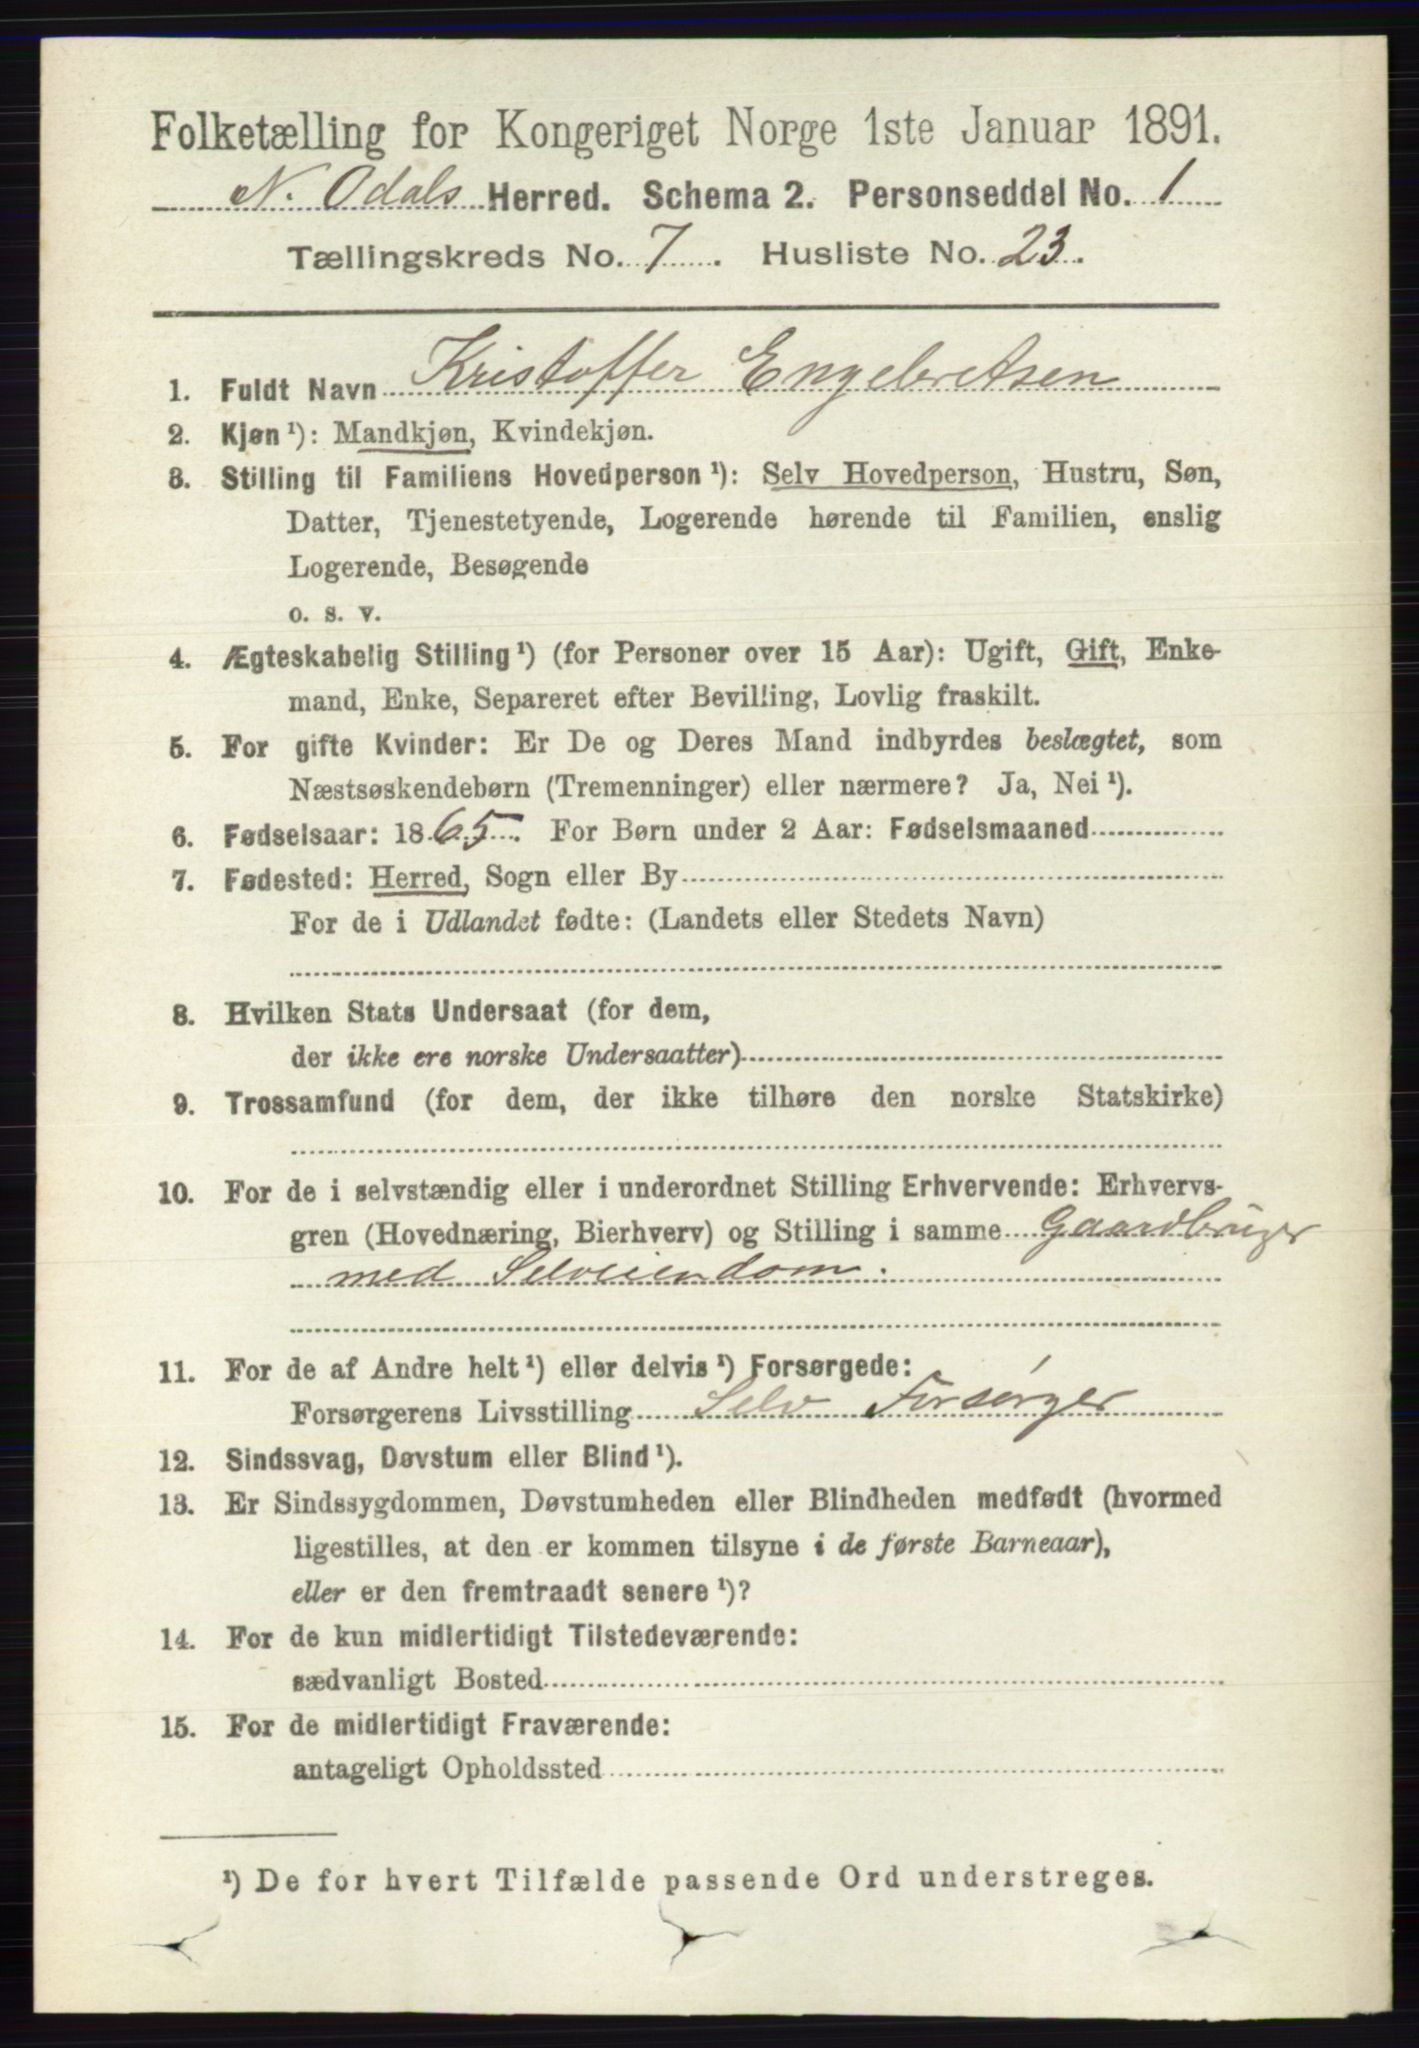 Folketælling for Kongeriget Norge 1ste Januar 1891.
N. Odals Herred. Schema 2. Personseddel No. 1
Tællingskreds No. 7. Husliste No. 23.
1. Fuldt Navn Kristoffer Engebretsen
2. Kjøn¹): Mandkjøn, Kvindekjøn.
3. Stilling til Familiens Hovedperson¹): Selv Hovedperson, Hustru, Søn,
Datter, Tjenestetyende, Logerende hørende til Familien, enslig
Logerende, Besøgende
o. s. v.
4. Ægteskabelig Stilling¹) (for Personer over 15 Aar): Ugift, Gift, Enke-
mand, Enke, Separeret efter Bevilling, Lovlig fraskilt.
5. For gifte Kvinder: Er De og Deres Mand indbyrdes beslægtet, som
Næstsøskendebørn (Tremenninger) eller nærmere? Ja, Nei¹).
6. Fødselsaar: 1865. For Børn under 2 Aar: Fødselsmaaned
7. Fødested: Herred, Sogn eller By
For de i Udlandet fødte: (Landets eller Stedets Navn)
8. Hvilken Stats Undersaat (for dem,
der ikke ere norske Undersaatter)
9. Trossamfund (for dem, der ikke tilhøre den norske Statskirke)
10. For de i selvstændig eller i underordnet Stilling Erhvervende: Erhvervs-
gren (Hovednæring, Bierhverv) og Stilling i samme Gaardbruger
med Selveiendom.
11. For de af Andre helt¹) eller delvis¹) Forsørgede:
Forsørgerens Livsstilling Selv Forsørger
12. Sindssvag, Døvstum eller Blind¹).
13. Er Sindssygdommen, Døvstumheden eller Blindheden medfødt (hvormed
ligestilles, at den er kommen tilsyne i de første Barneaar),
eller er den fremtraadt senere¹)?
14. For de kun midlertidigt Tilstedeværende:
sædvanligt Bosted
15. For de midlertidigt Fraværende:
antageligt Opholdssted
¹) De for hvert Tilfælde passende Ord understreges.